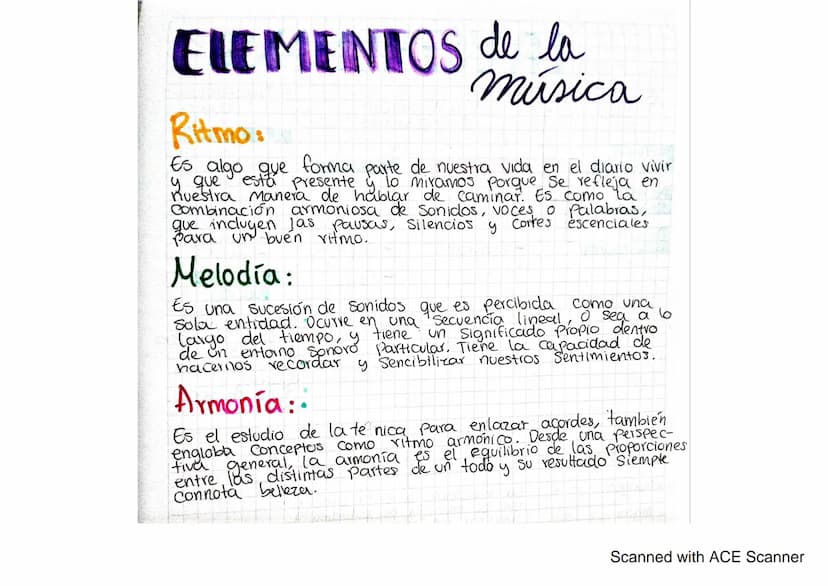 ELEMENTOS de la
música
Ritmo:
Es algo que forma parte de nuestra vida en el diario vivir
y que está presente y lo miramos porque se refleja en
nuestra manera de hablar de caminar. Es como la
combinación armoniosa de sonidos, voces o palabras,
que incluyen las pausas, silencios y cortes escenciales
para un buen ritmo.
Melodía:
Es una sucesión de sonidos que es percibida como una
sola entidad. Ocurre en una secuencia lineal, o sea a lo
largo del tiempo, y tiene un significado propio dentro
de un entorno sonoro particular. Tiene la capacidad de
hacernos recordar y sencibilizar nuestros sentimientos.
Armonía:
Es el estudio de la té nica para enlazar acordes, también
engloba conceptos como ritmo armónico. Desde una perspec-
tiva general, la armonía es el equilibrio de las proporciones
entre las distintas partes de un todo y su resultado siempre
connota belleza.
Scanned with ACE Scanner